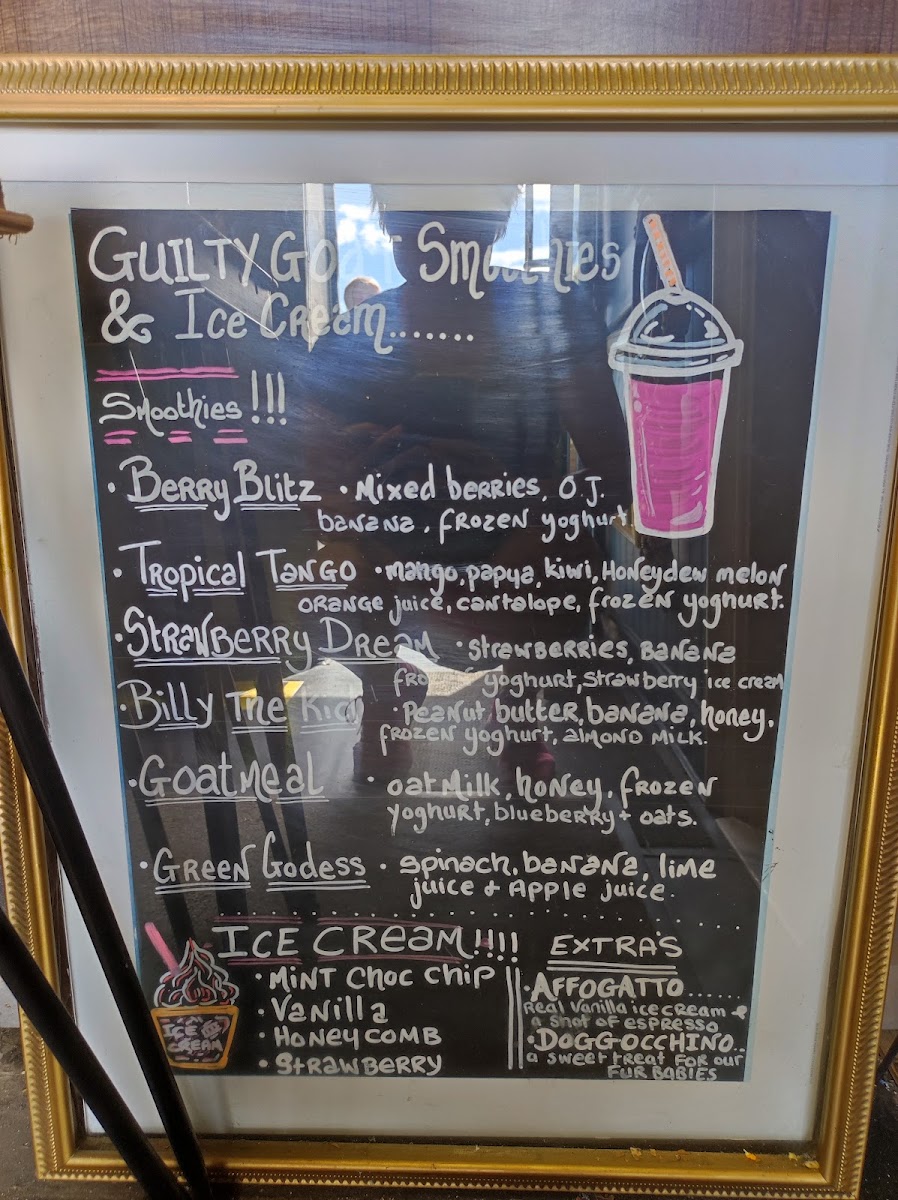 GUILTY GOAT SMOOTHIES
& ICE CREAM.......
Smoothies!!!
· BERRY BLITZ · Mixed berries, O.J.
banana, frozen yoghurt
· TROPICAL TANGO · mango, papya, kiwi, Honeydew melon
orange juice, cantalope, frozen yoghurt.
· STRAWBERRY DREAM · strawberries, BANANA
yoghurt, strawberry ice cream
· BILLY THE KID · Peanut butter, banana, honey,
frozen yoghurt, almond milk.
· GOATMEAL · oat milk, honey, frozen
yoghurt, blueberry + oats.
· GREEN GODESS · spinach, banana, lime
juice & Apple juice.
ICE CREAM!!!!
· MINT CHOC CHIP
· Vanilla
· HONEYCOMB
· STRAWBERRY
ICE
CREAM
EXTRA'S
· AFFOGATTO......
Real Vanilla ice cream &
a shot of espresso
· DOGGOCCHINO..
a sweet treat for our
FUR BABIES